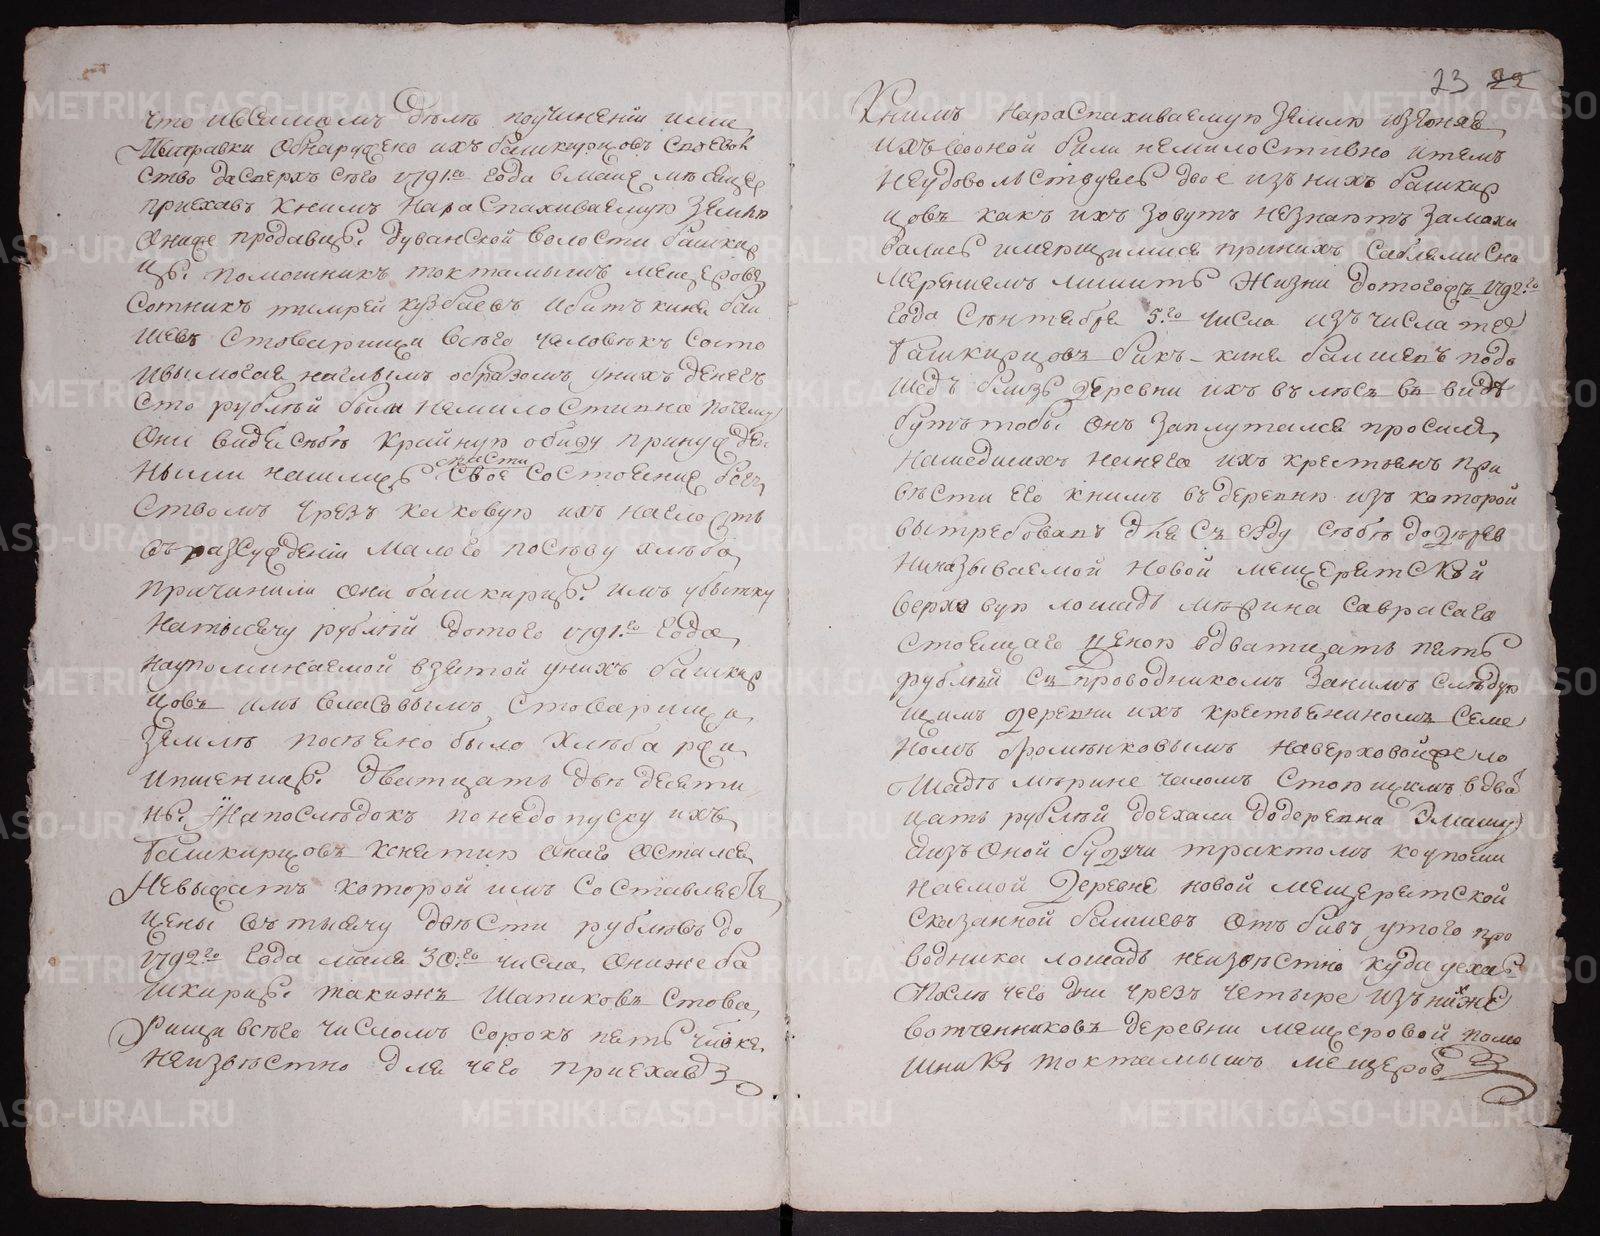 что исамомъ дѣлѣ починеніи ими
справки обнаружено ихъ башкирцовъ своевол
ство да сверхъ сего 1791.го года вмаие месяце
приехавъ книмъ нараспахиваемую землю
ониже продавцы. дуванской волости башкир
цы. помошникъ токтамышъ мещеровъ
сотникъ тимрей кузбаевъ ибикъ кина баи
шевъ стоварищи всего человѣкъ состо
ивымогая наглымъ образомъ унихъ денегъ
сто рублей били немилостивно почему
они видя себѣ крайную обиду принужде.
ными нашлись свое нести состояние бегъ
ствомъ чрезъ каковую ихъ наглость
въ разсуждении малого посѣву хлѣба
причинили они башкирцы. имъ убытку
натысячу рублей дотого 1791.го года
наупоминаемой взятой унихъ башкир
цовъ имъ власовымъ стоварищи
землѣ посѣено было хлѣба ржи
ипшеницы. дватцать двѣ десяти
ны. Напослѣдокъ понедопуску ихъ
башкирцовъ кснятию онаго остался
Невыжатъ которой имъ составляетъ
цены втысячу двѣсти рублевъ до
1792го года мая 30.го числа, ониже ба
шкирцы. такижъ Шапиковъ стова
рищи всего числомъ сорокъ пять чѣлокъ
неизвѣстно для чего приехавъ
23 22
Книмъ нараспахиваемую землю изгоняя
ихъ соной били немилостивно итемъ
неудовольствуясь двое изъ нихъ башкир
цовъ какъ ихъ зовутъ незнаютъ замахи
вались имеющимися приннхъ саблями сна
мерениемъ лишить жизни дотогожъ 1792.го
года Сентября 5.го числа изъ числа тех
башкирцовъ бикъ-кина баишевъ подъ
шедъ близь деревни ихъ въ лѣсъ въ видѣ
бутътобы онъ заплутался просилъ
нашедшихъ нанего ихъ крестьянъ при
вѣсти его книмъ въ деревню изъ которой
вытребовавъ для съезду себѣ додерев
ни называемой новой мещерятской
верховую лошадь мѣрина савраcаго
стоящаго ценою вдватцать пять
рублей съ проводникомъ Занимъ слѣдую
щимъ деревни ихъ крестьяниномъ семе
номъ Фоменковымъ наверховойже ло
шадѣ мѣрине чаломъ стоющимъ вдва
цать рублей доехали додеревни Эмашу
аизъ оной будучи трактомъ коупоми
наемой деревне новой мещерятской
сказанной баишевъ отъбивъ утого про
водника лошадь неизвѣстно куда уехалъ
После чего дни чрезъ четыре изънихже
вотчинниковъ деревни мещеровой помо
шникъ токтамышъ мещеровъ
METRIKI.GASO-URAL.RU